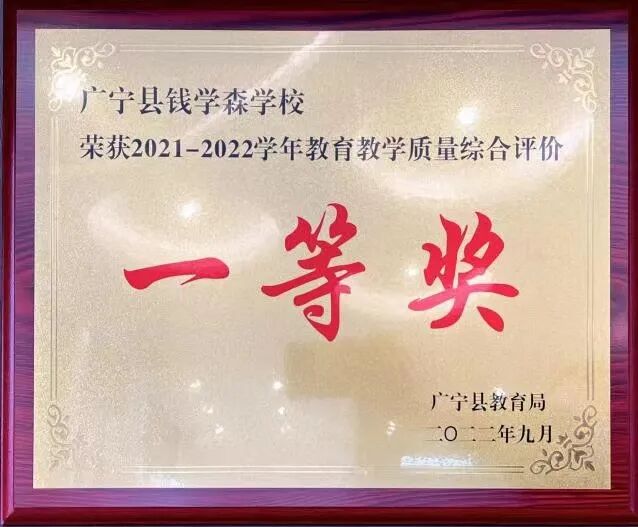 广宁县钱学森学校
荣获2021-2022学年教育教学质量综合评价
一等奖
广宁县教育局
二〇二二年九月